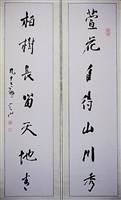 萱花自得山川秀
柏樹長留天地春